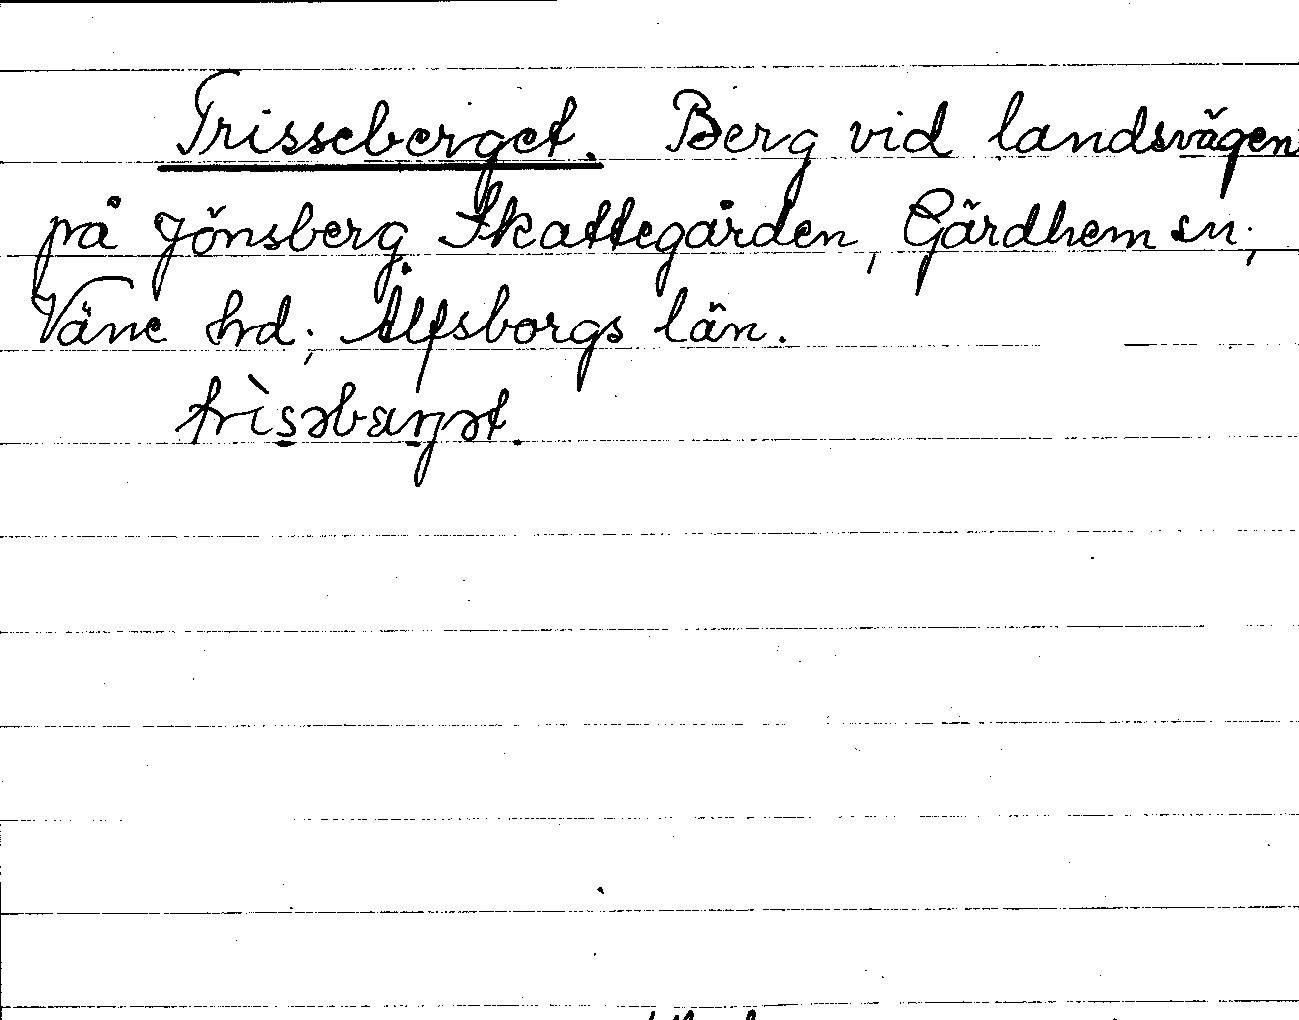 Trisseberget. Berg vid landsvägen
på Jönsberg Skattegården, Gärdhem sn,
Väne hd, Älfsborgs län.